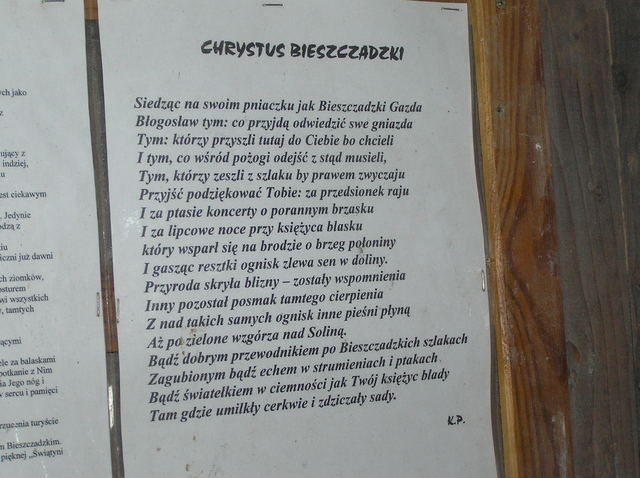 CHRYSTUS BIESZCZADZKI
Siedząc na swoim pniaczku jak Bieszczadzki Gazda
Błogosław tym: co przyjdą odwiedzić swe gniazda
Tym: którzy przyszli tutaj do Ciebie bo chcieli
I tym, co wśród pożogi odejść z stąd musieli,
Tym, którzy zeszli z szlaku by prawem zwyczaju
Przyjść podziękować Tobie: za przedsionek raju
I za ptasie koncerty o porannym brzasku
I za lipcowe noce przy księżyca blasku
który wsparł się na brodzie o brzeg połoniny
I gasząc resztki ognisk zlewa sen w doliny.
Przyroda skryła blizny – zostały wspomnienia
Inny pozostał posmak tamtego cierpienia
Z nad takich samych ognisk inne pieśni płyną
Aż po zielone wzgórza nad Soliną.
Bądź dobrym przewodnikiem po Bieszczadzkich szlakach
Zagubionym bądź echem w strumieniach i ptakach
Bądź światełkiem w ciemności jak Twój księżyc blady
Tam gdzie umilkły cerkwie i zdziczały sady.
K.P.
ych jako
z
ujący z
indziej,
u
est ciekawym
Jedynie
odzą z
iu
iczni już dawni
ch ziomków,
osturem
wi wszystkich
, tamtych
ącymi
ele za balaskami
potkanie z Nim
ia Jego nóg i
w sercu i pamięci
rzucania turyście
m Bieszczadzkim.
pięknej „Świątyni